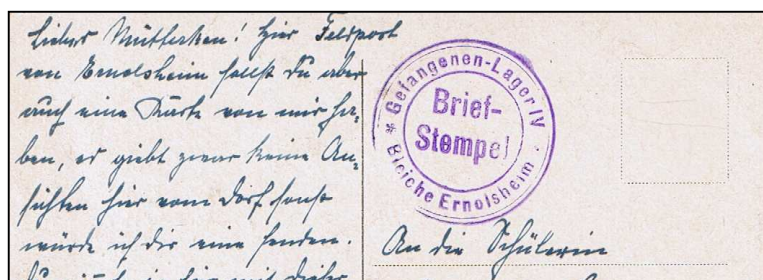 Liebes Mütterken! Hier Feldpost
von Ernolsheim sollst Du aber
auch eine Karte von mir ha-
ben, es giebt zwar keine An-
sichten hier vom Dorf sonst
würde ich dir eine senden.
mit dieser
Gefangenen-Lager IV
Brief-
Stempel
* Bleiche Ernolsheim *
An die Schülerin